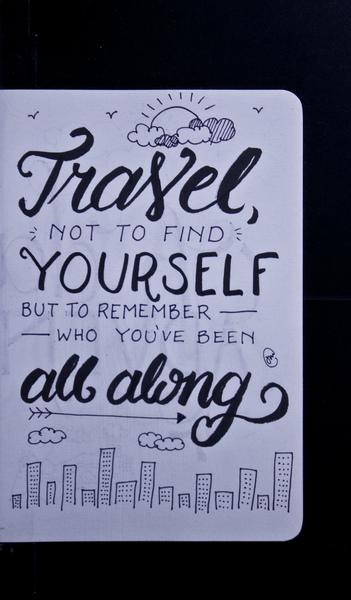 Travel,
NOT TO FIND
YOURSELF
BUT TO REMEMBER
WHO YOU'VE BEEN
all along